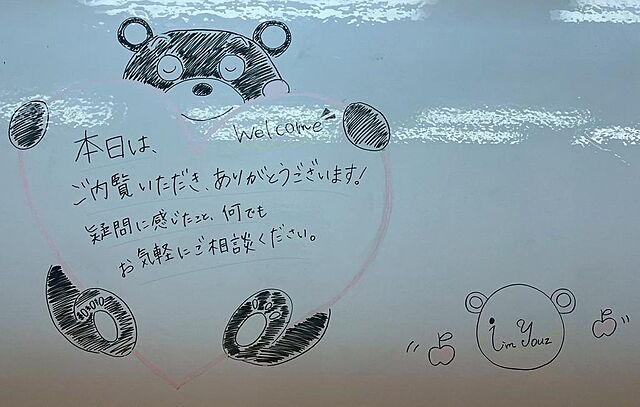 Welcome
本日は、
ご内覧いただき、ありがとうございます!
疑問に感じたこと、何でも
お気軽にご相談ください。
i.im Youz